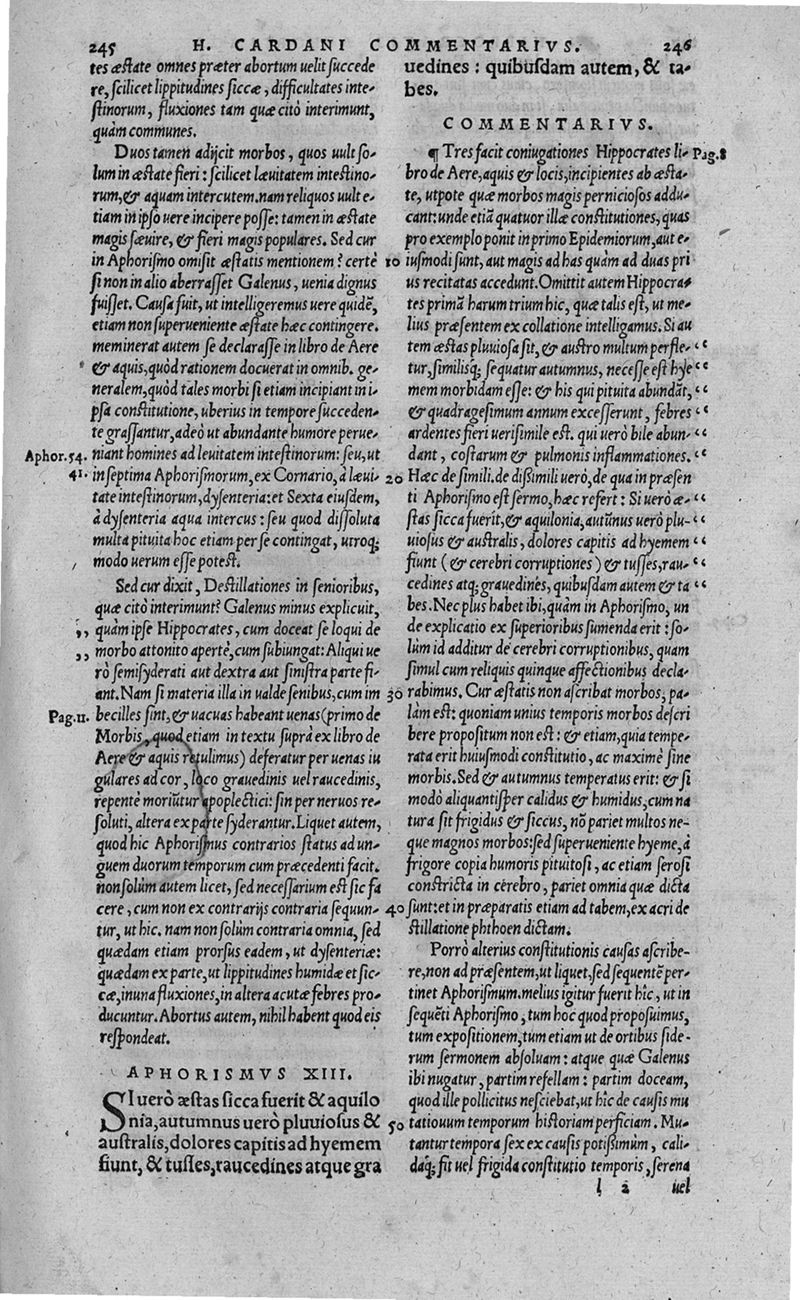 245 H. CARDANI COMMENTARIVS. 246
tes æstate omnes præter abortum uelit succede
re, scilicet lippitudines siccæ, difficultates inte-
stinorum, fluxiones tam quæ citò interimunt,
quàm communes.
Duos tamen adijcit morbos, quos uult so-
lum in æstate fieri: scilicet læuitatem intestino-
rum, & aquam intercutem. nam reliquos uult e-
tiam in ipso uere incipere posse: tamen in æstate
magis sæuire, & fieri magis populares. Sed cur
in Aphorismo omisit æstatis mentionem? certè
si non in alio aberrasset Galenus, uenia dignus
fuisset. Causa fuit, ut intelligeremus uere quidē,
etiam non superueniente æstate hæc contingere.
meminerat autem se declarasse in libro de Aere
& aquis, quòd rationem docuerat in omnib. ge-
neralem, quòd tales morbi si etiam incipiant in i-
psa constitutione, uberius in tempore succeden-
te grassantur, adeò ut abundante humore perue-
Aphor. 54. niant homines ad leuitatem intestinorum: seu, ut
41. in septima Aphorismorum, ex Cornario, à læui-
tate intestinorum, dysenteria: et Sexta eiusdem,
à dysenteria aqua intercus: seu quod dissoluta
multa pituita hoc etiam per se contingat, utroq;
modo uerum esse potest.
Sed cur dixit, Destillationes in senioribus,
quæ citò interimunt? Galenus minus explicuit,
,, quàm ipse Hippocrates, cum doceat se loqui de
,, morbo attonito apertè, cum subiungat: Aliqui ue
rò semisyderati aut dextra aut sinistra parte fi-
ant. Nam si materia illa in ualde senibus, cum im
Pag. 11. becilles sint, & uacuas habeant uenas (primo de
Morbis, quod etiam in textu suprà ex libro de
Aere & aquis retulimus) deferatur per uenas iu
gulares ad cor, loco grauedinis uel raucedinis,
repentè moriūtur apoplectici: sin per neruos re-
soluti, altera ex parte syderantur. Liquet autem,
quod hic Aphorismus contrarios status ad un-
guem duorum temporum cum præcedenti facit.
non solùm autem licet, sed necessarium est sic fa
cere, cum non ex contrarijs contraria sequun-
tur, ut hic. nam non solùm contraria omnia, sed
quædam etiam prorsus eadem, ut dysenteriæ:
quædam ex parte, ut lippitudines humidæ et sic-
cæ, in una fluxiones, in altera acutæ febres pro-
ducuntur. Abortus autem, nihil habent quod eis
respondeat.
APHORISMVS XIII.
SI uerò æstas sicca fuerit & aquilo
nia, autumnus uerò pluuiosus &
australis, dolores capitis ad hyemem
fiunt, & tusses, raucedines atque gra
uedines: quibusdam autem, & ta-
bes.
COMMENTARIVS.
¶ Tres facit coniugationes Hippocrates li- Pag. 8
bro de Aere, aquis & locis, incipientes ab æsta-
te, utpote quæ morbos magis perniciosos addu-
cant: unde etiā quatuor illæ constitutiones, quas
pro exemplo ponit in primo Epidemiorum, aut e-
10 iusmodi sunt, aut magis ad has quàm ad duas pri
us recitatas accedunt. Omittit autem Hippocra-
tes primā harum trium hic, quæ talis est, ut me-
lius præsentem ex collatione intelligamus. Si au
tem æstas pluuiosa sit, & austro multum perfle- “
tur, similisq; sequatur autumnus, necesse est hye “
mem morbidam esse: & his qui pituita abundāt, “
& quadragesimum annum excesserunt, febres “
ardentes fieri uerisimile est. qui uerò bile abun- “
dant, costarum & pulmonis inflammationes. “
20 Hæc de simili. de dissimili uerò, de qua in præsen
ti Aphorismo est sermo, hæc refert: Si uerò æ- “
stas sicca fuerit, & aquilonia, autūnus uerò plu- “
uiosus & australis, dolores capitis ad hyemem “
fiunt (& cerebri corruptiones) & tusses, rau- “
cedines atq; grauedines, quibusdam autem & ta “
bes. Nec plus habet ibi, quàm in Aphorismo, un
de explicatio ex superioribus sumenda erit: so-
lùm id additur de cerebri corruptionibus, quam
simul cum reliquis quinque affectionibus decla-
30 rabimus. Cur æstatis non ascribat morbos, pa-
làm est: quoniam unius temporis morbos descri
bere propositum non est: & etiam, quia tempe-
rata erit huiusmodi constitutio, ac maximè sine
morbis. Sed & autumnus temperatus erit: & si
modò aliquantisper calidus & humidus, cum na
tura sit frigidus & siccus, nō pariet multos ne-
que magnos morbos: sed superueniente hyeme, à
frigore copia humoris pituitosi, ac etiam serosi
constricta in cerebro, pariet omnia quæ dicta
40 sunt: et in præparatis etiam ad tabem, ex acri de
stillatione phthoen dictam.
Porrò alterius constitutionis causas ascribe-
re, non ad præsentem, ut liquet, sed sequentē per-
tinet Aphorismum. melius igitur fuerit hîc, ut in
sequēti Aphorismo, tum hoc quod proposuimus,
tum expositionem, tum etiam ut de ortibus side-
rum sermonem absoluam: atque quæ Galenus
ibi nugatur, partim refellam: partim doceam,
quod ille pollicitus nesciebat, ut hîc de causis mu
50 tationum temporum historiam perficiam. Mu-
tantur tempora sex ex causis potissimùm, cali-
daq́; fit uel frigida constitutio temporis, serena
l 2 uel